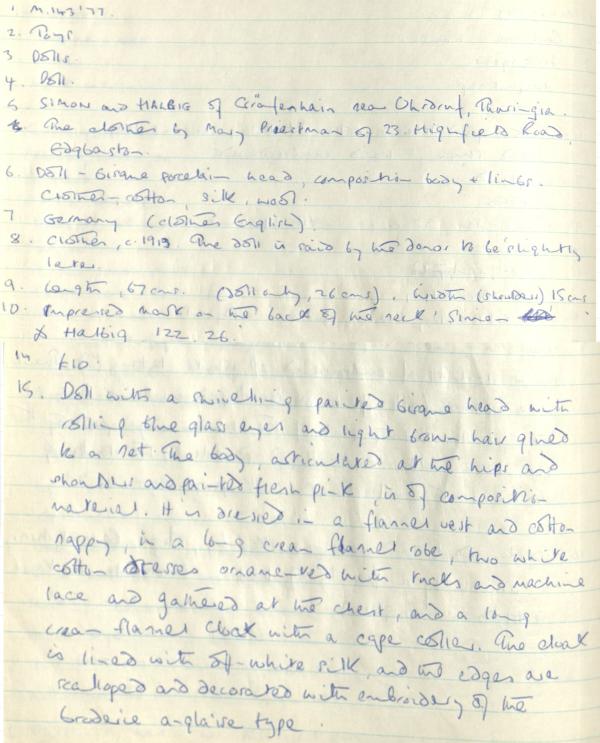 1 M.143'77
2. Toys
3 Dolls.
4. Doll.
5 SIMON and HALBIG of Gräfenhain near Ohrdruf, Thuringia.
The clothes by Mary Priestman of 23 Highfield Road,
Edgbaston.
6. Doll - Bisque porcelain head, composition body & limbs.
Clothes - cotton, silk, wool.
7 Germany (clothes English).
8. Clothes, c. 1913 The doll is said by the donor to be slightly
later.
9. Length, 67 cms. (doll only, 26 cms). Width (shoulders) 15 cms
10. Impressed mark on the back of the neck: Simon
& Halbig 122. 26.
14 £10.
15. Doll with a swivelling painted bisque head with
rolling blue glass eyes and light brown hair glued
to a net. The body, articulated at the hips and
shoulders and painted flesh pink, is of composition
material. It is dressed in a flannel vest and cotton
nappy, in a long cream flannel robe, two white
cotton dresses ornamented with tucks and machine
lace and gathered at the chest, and a long
cream flannel cloak with a cape collar. The cloak
is lined with off-white silk, and the edges are
scalloped and decorated with embroidery of the
broderie anglaise type.